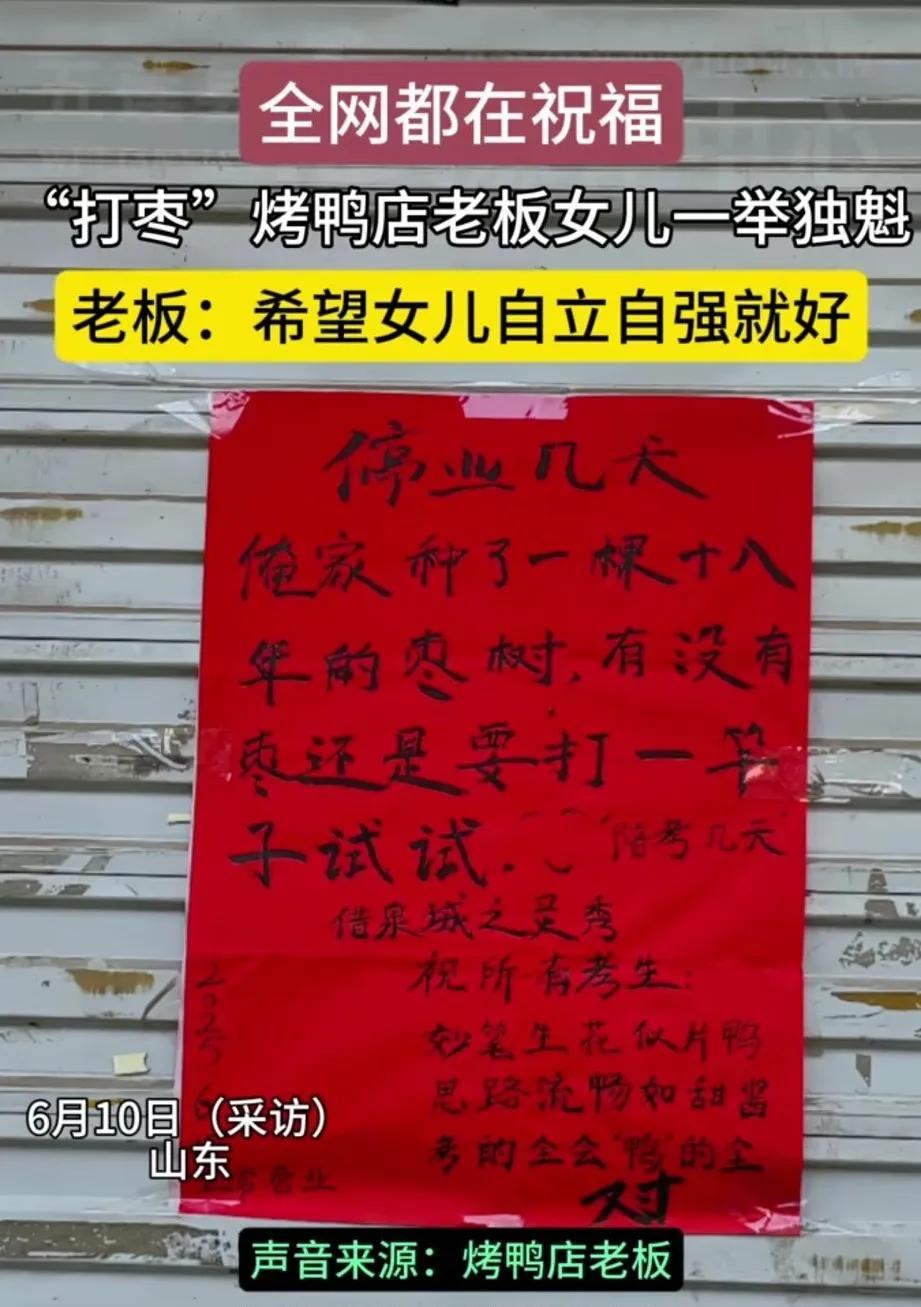 全网都在祝福
“打枣”烤鸭店老板女儿一举独魁
老板：希望女儿自立自强就好
停业几天
俺家种了一棵十八
年的枣树,有没有
枣还是要打一竿
子试试.
"陪考几天"
借泉城之灵秀
祝所有考生:
妙笔生花似片鸭
思路流畅如甜酱
考的全会"鸭"的全
对
2025
6
营业
6月10日（采访）
山东
声音来源：烤鸭店老板